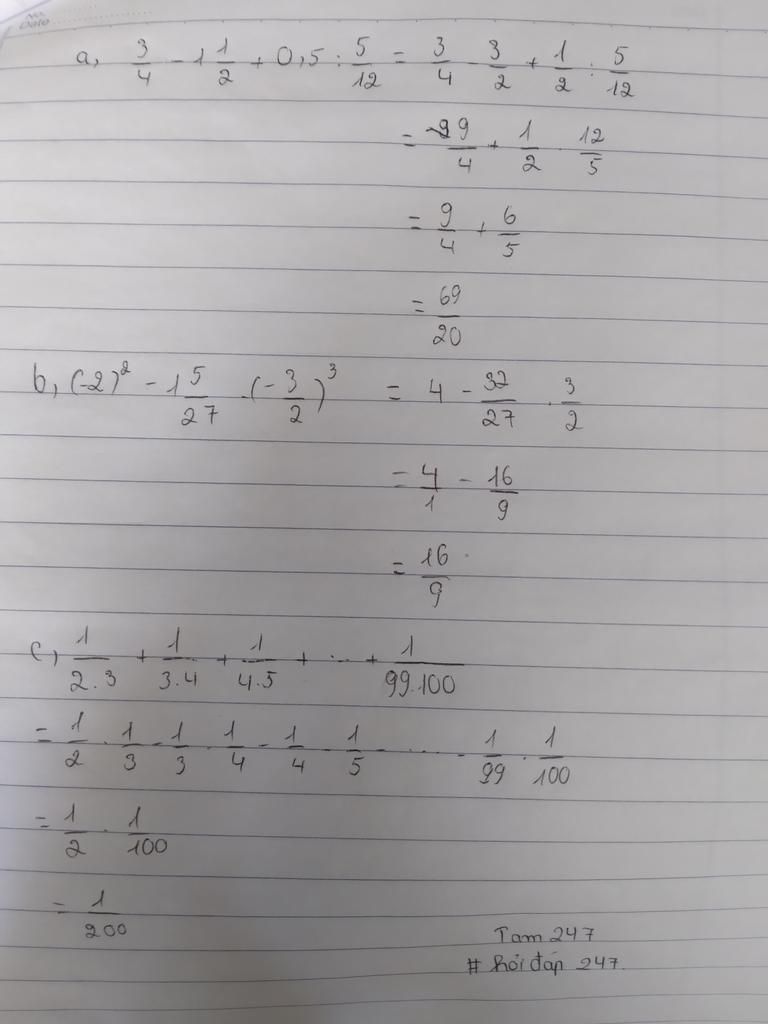 No.
Date
a, 3/4 - 1 1/2 + 0,5 : 5/12 = 3/4 - 3/2 + 1/2 : 5/12
= 9/4 + 1/2 . 12/5
= 9/4 + 6/5
= 69/20
b, (-2)² - 1 5/27 . (-3/2)³ = 4 - 32/27 . 3/2
= 4/1 - 16/9
= 16/9
c, 1/2.3 + 1/3.4 + 1/4.5 + ... + 1/99.100
= 1/2 . 1/3 - 1/3 . 1/4 - 1/4 - 1/5 - .... - 1/99 . 1/100
= 1/2 . 1/100
= 1/200
Tam 247
# hỏi đáp 247.